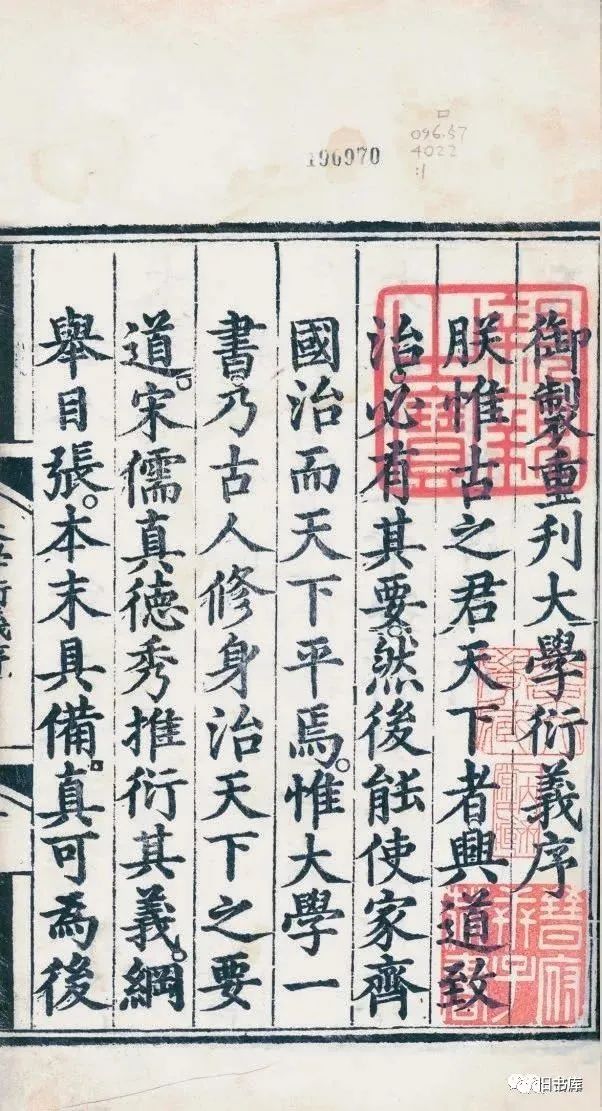 096.57
4022
:1
190970
御製重刋大學衍義序
朕惟古之君天下者興道致
治。必有其要。然後能使家齊
國治而天下平焉。惟大學一
書。乃古人修身治天下之要
道。宋儒真德秀推衍其義。綱
舉目張。本末具備。真可爲後
旧书库